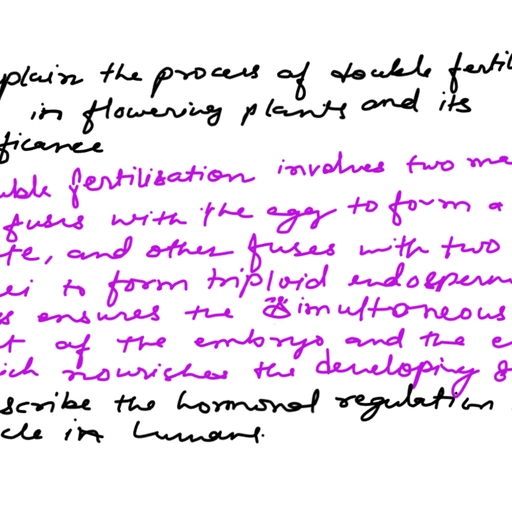 plain the process of double fertil
in flowering plants and its
ficance
uble fertilisation involves two ma
fuses with the egg to form a
te, and other fuses with two
ei to form triploid endosperm
s ensures the simultoneous
t of the embryo and the e
ich nourishes the developing
scribe the hormonal regulation
cle in humans.